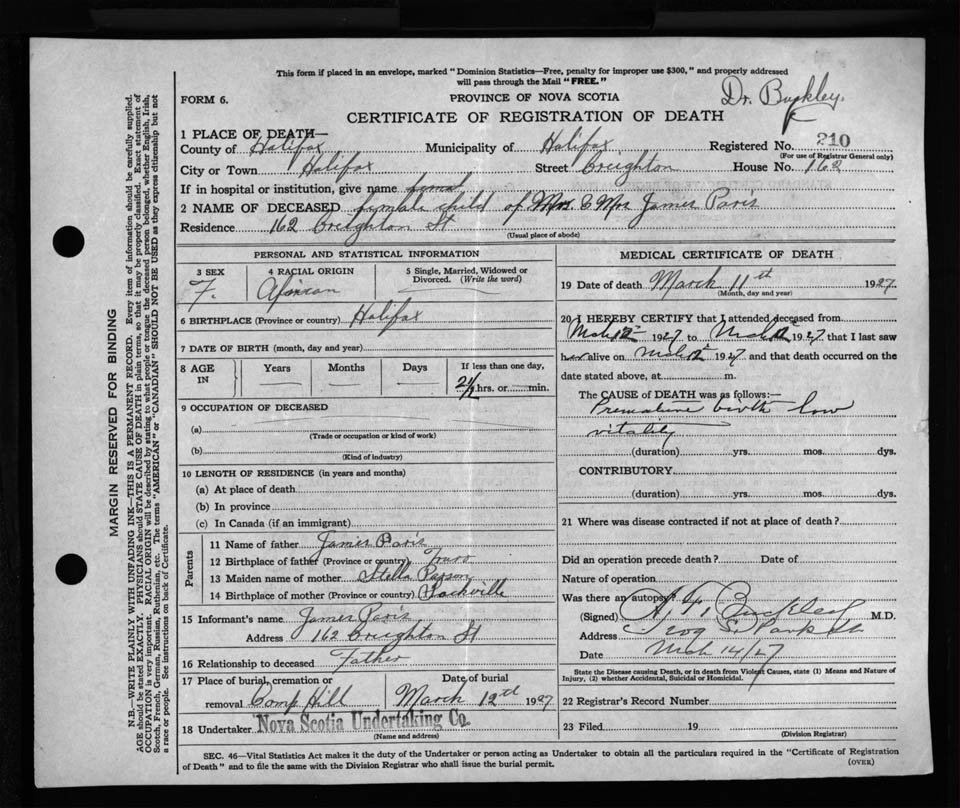 This form if placed in an envelope, marked "Dominion Statistics—Free, penalty for improper use $300," and properly addressed
will pass through the Mail "FREE."
Dr. Buckley.
FORM 6.
PROVINCE OF NOVA SCOTIA
CERTIFICATE OF REGISTRATION OF DEATH
1 PLACE OF DEATH—
County of Halifax Municipality of Halifax Registered No. 210
(For use of Registrar General only)
City or Town Halifax Street Creighton House No. 162
If in hospital or institution, give name
2 NAME OF DECEASED female child of Mr & Mrs James Paris
Residence 162 Creighton St
(Usual place of abode)
PERSONAL AND STATISTICAL INFORMATION
3 SEX 4 RACIAL ORIGIN 5 Single, Married, Widowed or Divorced. (Write the word)
F. African
6 BIRTHPLACE (Province or country) Halifax
7 DATE OF BIRTH (month, day and year)
8 AGE IN Years Months Days If less than one day,
2 1/2 hrs. or min.
9 OCCUPATION OF DECEASED
(a)
(Trade or occupation or kind of work)
(b)
(Kind of industry)
10 LENGTH OF RESIDENCE (in years and months)
(a) At place of death
(b) In province
(c) In Canada (if an immigrant)
Parents
11 Name of father James Paris
12 Birthplace of father (Province or country) Truro
13 Maiden name of mother Stella
14 Birthplace of mother (Province or country) Sackville
15 Informant's name James Paris
Address 162 Creighton St
16 Relationship to deceased Father
17 Place of burial, cremation or removal Camp Hill Date of burial March 12th 1927
18 Undertaker Nova Scotia Undertaking Co.
(Name and address)
MEDICAL CERTIFICATE OF DEATH
19 Date of death March 11th 1927
(Month, day and year)
20 I HEREBY CERTIFY that I attended deceased from
Mch 12 1927 to Mch 12 1927 that I last saw
her alive on Mch 12 1927 and that death occurred on the
date stated above, at m.
The CAUSE of DEATH was as follows:—
Premature birth low
vitality
(duration) yrs. mos. dys.
CONTRIBUTORY
(duration) yrs. mos. dys.
21 Where was disease contracted if not at place of death?
Did an operation precede death? Date of
Nature of operation
Was there an autopsy?
(Signed) Buckley M.D.
Address 209 S. Park St
Date Mch 14/27
State the Disease causing Death, or in death from Violent Causes, state (1) Means and Nature of
Injury, (2) whether Accidental, Suicidal or Homicidal.
22 Registrar's Record Number
23 Filed 19
(Division Registrar)
SEC. 46—Vital Statistics Act makes it the duty of the Undertaker or person acting as Undertaker to obtain all the particulars required in the "Certificate of Registration
of Death" and to file the same with the Division Registrar who shall issue the burial permit.
(OVER)
MARGIN RESERVED FOR BINDING
N.B.—WRITE PLAINLY WITH UNFADING INK—THIS IS A PERMANENT RECORD. Every item of information should be carefully supplied.
AGE should be stated EXACTLY. PHYSICIANS should STATE CAUSE OF DEATH in plain terms, so that it may be properly classified. Exact statement of
OCCUPATION is very important. RACIAL ORIGIN will be described by stating to what people or tongue the deceased person belonged, whether English, Irish,
Scotch, French, German, Russian, Ruthenian, etc. The terms "AMERICAN" or "CANADIAN" SHOULD NOT BE USED as they express citizenship but not
a race or people. See instructions on back of Certificate.